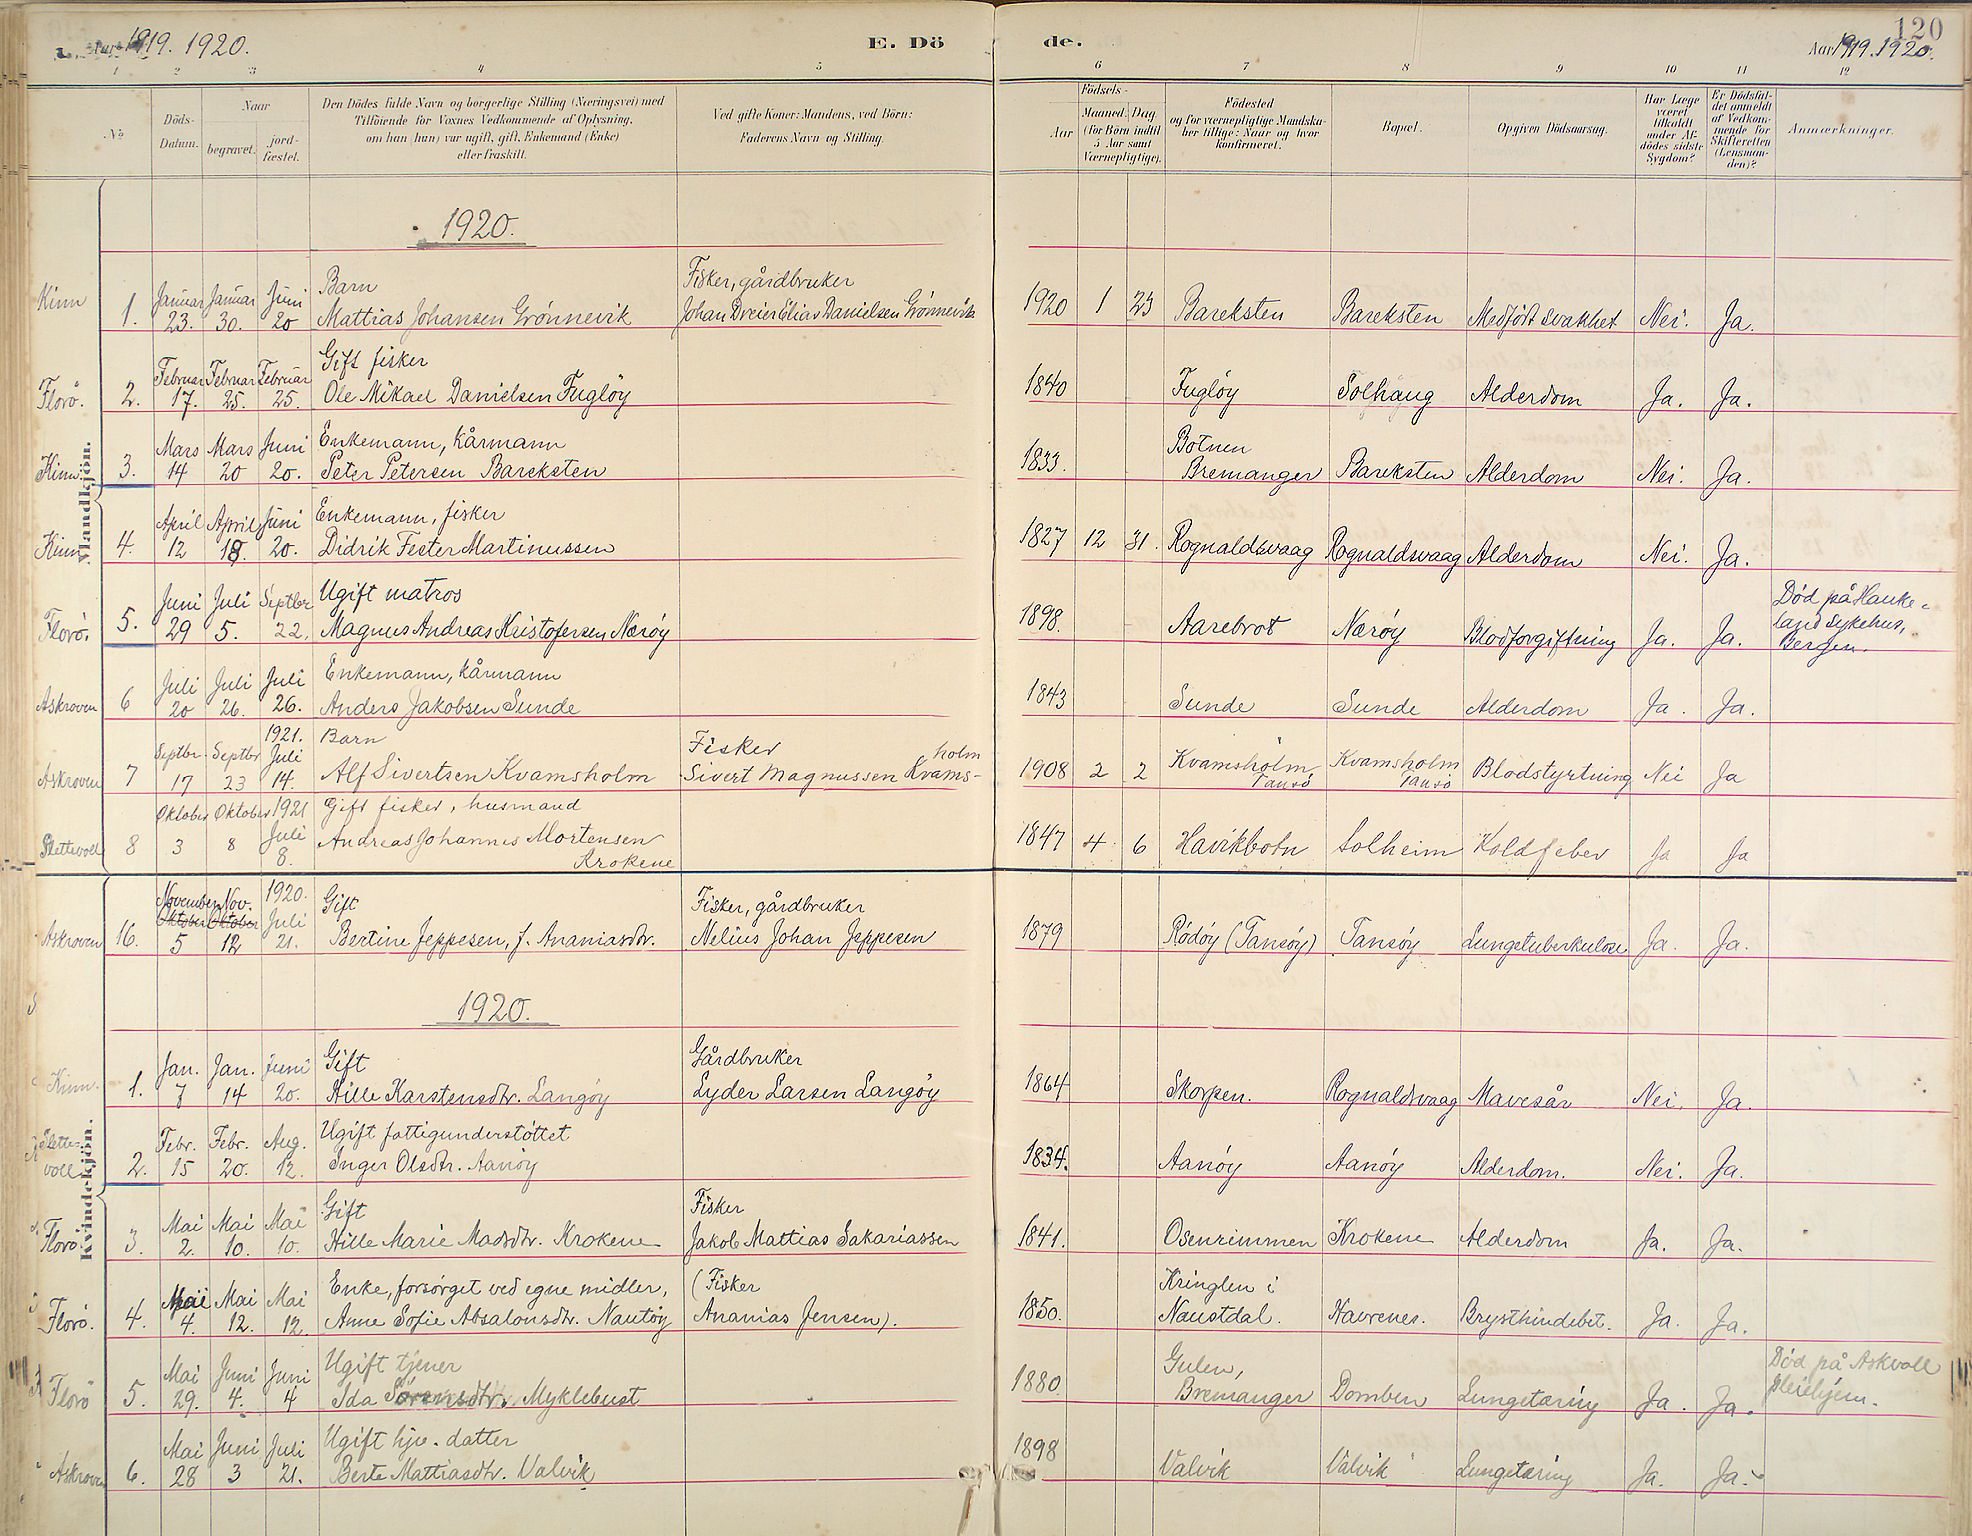 1919. 1920.
E. Dö de.
120
Aar 1919. 1920.
1 2 3 4 5 6 7 8 9 10 11 12
No
Döds-Datum.
Naar
begravet.
jord-fæstet.
Den Dödes fulde Navn og borgerlige Stilling (Næringsvei) med
Tilföiende for Voxnes Vedkommende af Oplysning,
om han (hun) var ugift, gift, Enkemand (Enke)
eller fraskilt.
Ved gifte Koner: Mandens, ved Börn:
Faderens Navn og Stilling.
Födsels-
Aar
Maaned. Dag.
(for Börn indtil
5 Aar samt
Værnepligtige).
Födested
og for værnepligtige Mandska-
ber tillige: Naar og hvor
konfirmeret.
Bopæl.
Opgiven Dödsaarsag.
Har Læge
været
tilkaldt
under Af-
dödes sidste
Sygdom?
Er Dödsfal-
det anmeldt
af Vedkom-
mende for
Skifteretten
(Lensman-
den)?
Anmærkninger.
Mandkjön.
1920.
Kinn 1. Januar 23. Januar 30. Juni 20 Barn
Mattias Johansen Grönnevik
Fisker, gårdbruker
Johan Dreier Elias Danielsen Grönnevik
1920 1 23 Bareksten Bareksten Medfödt svakhet Nei. Ja.
Florö. 2. Februar 17. Februar 25. Februar 25. Gift fisker
Ole Mikael Danielsen Fuglöy
1840 Fuglöy Solhaug Alderdom Ja. Ja.
Kinn 3. Mars 14 Mars 20 Juni 20. Enkemann, kårmann
Peter Petersen Bareksten
1833. Botnen
Bremanger Bareksten Alderdom Nei. Ja.
Kinn 4. April 12 April 18. Juni 20. Enkemann, fisker
Didrik Fester Martinussen
1827 12 31. Rognaldsvaag Rognaldsvaag Alderdom Nei. Ja.
Florö. 5. Juni 29 Juli 5. Septbr 22. Ugift matros
Magnus Andreas Kristofersen Næröy
1898. Aarebrot Næröy Blodforgiftning Ja. Ja. Död på Hauke-
land sykehus,
Bergen.
Askroven 6 Juli 20 Juli 26. Juli 26. Enkemann, kårmann
Anders Jakobsen Sunde
1843 Sunde Sunde Alderdom Ja. Ja.
Askroven 7 Septbr. 17 Septbr 23 1921. Juli 14. Barn
Alf Sivertsen Kvamsholm
Fisker
Sivert Magnussen Kvams-
holm
1908 2 2 Kvamsholm
Tansö Kvamsholm
Tansö Blodstyrtning Nei Ja
Slettevoll 8 Oktober 3 Oktober 8 1921 Juli 8. Gift fisker, husmand
Andreas Johannes Mortensen
Krokene
1847 4 6 Havikbotn Solheim Koldfeber Ja Ja
Askroven 16. November Oktober 5 Nov. Oktober 12 1920. Juli 21. Gift
Bertine Jeppesen, f. Ananiasdtr.
Fisker, gårdbruker
Nelius Johan Jeppesen
1879 Rödöy (Tansöy) Tansöy Lungetuberkulose Ja. Ja.
1920.
Kvindekjön.
Kinn. 1. Jan. 7 Jan. 14 Juni 20. Gift
Hille Karstensdtr. Langöy
Gårdbruker
Lyder Larsen Langöy
1864 Skorpen. Rognaldsvaag Mavesår Nei. Ja.
Slette-
voll 2. Febr. 15 Febr. 20. Aug. 12. Ugift fattigunderstöttet
Inger Olsdtr. Aanöy
1834. Aanöy Aanöy Alderdom. Nei. Ja.
Florö 3. Mai 2. Mai 10. Mai 10. Gift
Hille Marie Madsdtr. Krokene
Fisker
Jakob Mattias Sakariassen
1841. Osenrimmen Krokene Alderdom Ja. Ja.
Florö. 4. Mai 4. Mai 12. Mai 12. Enke, forsörget ved egne midler,
Anne Sofie Absalonsdtr. Nautöy
(Fisker
Ananias Jensen).
1850. Kringlen i
Naustdal. Havrenes. Brysthindebet. Ja. Ja.
Florö 5. Mai 29. Juni 4. Juni 4 Ugift tjener
Ida Sörensdtr. Myklebust
1880. Gulen,
Bremanger Domben Lungetæring Ja. Ja. Död på Askvoll
pleiehjem.
Askroven 6. Mai 28 Juni 3 Juli 21. Ugift hjv. datter
Berte Mattiasdtr. Valvik
1898 Valvik Valvik Lungetæring Ja. Ja.